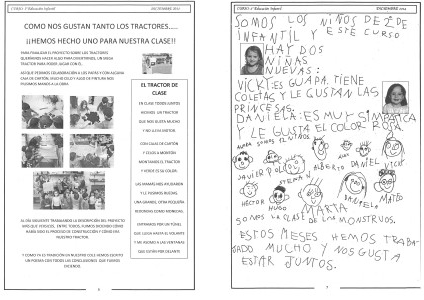 CURSO: 1º Educación Infantil DICIEMBRE 2014
COMO NOS GUSTAN TANTO LOS TRACTORES…..
¡¡HEMOS HECHO UNO PARA NUESTRA CLASE!!
PARA FINALIZAR EL PROYECTO SOBRE LOS TRACTORES
QUERÍAMOS HACER ALGO PARA DIVERTIRNOS, UN MEGA
TRACTOR PARA PODER JUGAR CON ÉL.
ASÍ QUE PEDIMOS COLABORACIÓN A LOS PAPÁS Y CON ALGUNA
CAJA DE CARTÓN, MUCHO CELO Y ALGO DE PINTURA NOS
PUSIMOS MANOS A LA OBRA
EL TRACTOR DE
CLASE
EN CLASE TODOS JUNTOS
HICIMOS UN TRACTOR
QUE NOS GUSTA MUCHO
Y NO LLEVA MOTOR.
CON CAJAS DE CARTÓN
Y CELOS A MONTÓN
MONTAMOS EL TRACTOR
Y VERDE ES SU COLOR.
LAS MAMÁS NOS AYUDARON
Y LE PUSIMOS RUEDAS
UNA GRANDE, OTRA PEQUEÑA
REDONDAS COMO MONEDAS.
ENTRAMOS POR UN TÚNEL
QUE LLEGA HASTA EL VOLANTE
Y ME ASOMO A LAS VENTANAS
QUE ESTÁN POR DELANTE
AL DÍA SIGUIENTE TRABAJAMOS LA DESCRIPCIÓN DEL PROYECTO
MÁS QUE VISTOSO. ENTRE TODOS, FUIMOS DICIENDO CÓMO
HABÍA SIDO EL PROCESO DE CONSTRUCCIÓN Y CÓMO ERA
NUESTRO TRACTOR.
Y COMO YA ES TRADICIÓN EN NUESTRO COLE HEMOS ESCRITO
UN POEMA CON TODAS LAS CONCLUSIONES QUE FUIMOS
DICIENDO.
6
CURSO: 1º Educación Infantil DICIEMBRE 2014
SOMOS LOS NIÑOS DE 2º DE
INFANTIL Y ESTE CURSO
HAY DOS
NIÑAS
NUEVAS:
VICKY: ES GUAPA. TIENE
COLETAS Y LE GUSTAN LAS
PRINCESAS.
DANIELA: ES MUY SIMPATICA
Y LE GUSTA EL COLOR ROSA.
AHORA SOMOS
JAVIER POLO STELMA ALBERTO DANIEL VICKY
HECTOR HUGO MARTA DANIELA MATEO
SOMOS LA CLASE DE LOS MONSTRUOS.
ESTOS MESES HEMOS TRABA-
JADO MUCHO Y NOS GUSTA
ESTAR JUNTOS.
7